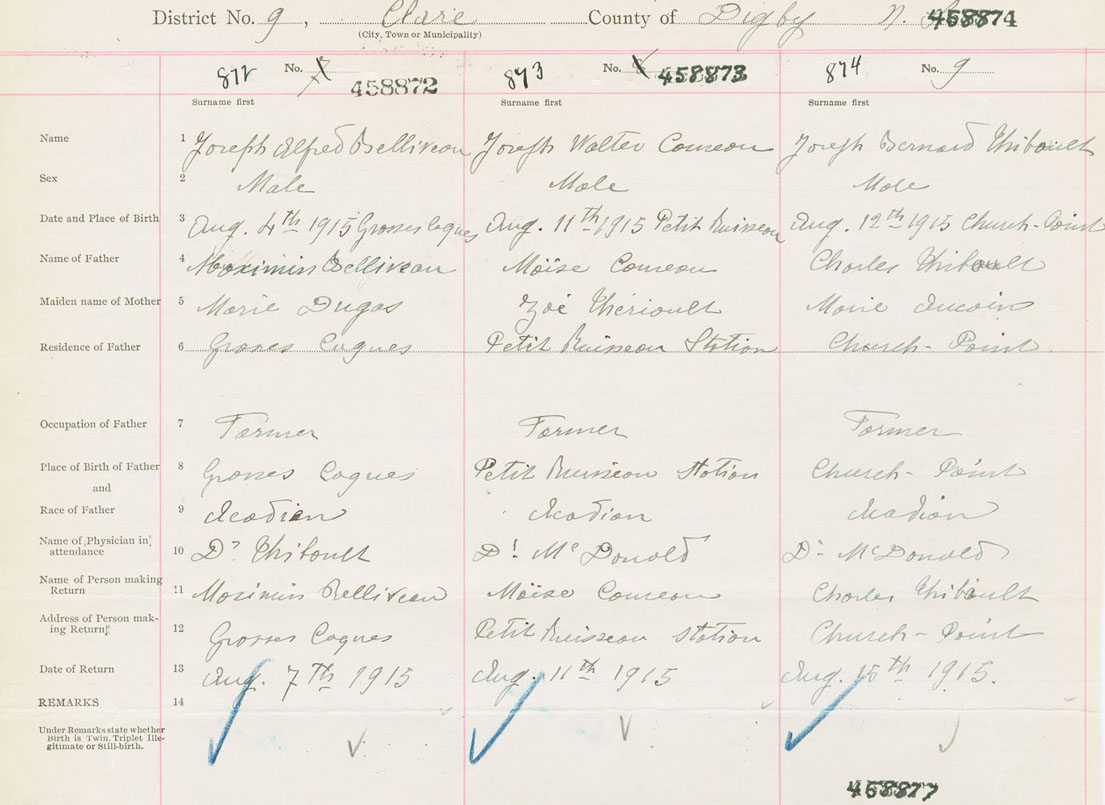 District No. 9, Clare County of Digby N. S. 458874
(City, Town or Municipality)
872 No. 7 458872 873 No. 8 458873 874 No. 9
Surname first Surname first Surname first
Name 1 Joseph Alfred Belliveau Joseph Walter Comeau Joseph Bernard Thibault
Sex 2 Male Male Male
Date and Place of Birth 3 Aug. 4th 1915 Grosses Coques Aug. 11th 1915 Petit Ruisseau Aug. 12th 1915 Church-Point
Name of Father 4 Maximin Belliveau Moïse Comeau Charles Thibault
Maiden name of Mother 5 Marie Dugas Zoé Thériault Marie Aucoin
Residence of Father 6 Grosses Coques Petit Ruisseau Station Church-Point
Occupation of Father 7 Farmer Farmer Farmer
Place of Birth of Father 8 Grosses Coques Petit Ruisseau Station Church-Point
and
Race of Father 9 Acadian Acadian Acadian
Name of [Physician in]
attendance 10 Dr Thibault Dr McDonald Dr McDonald
Name of Person making
Return 11 Maximin Belliveau Moïse Comeau Charles Thibault
Address of Person mak-
ing Return 12 Grosses Coques Petit Ruisseau Station Church-Point
Date of Return 13 Aug. 7th 1915 Aug. 11th 1915 Aug. 15th 1915.
REMARKS 14
Under Remarks state whether
Birth is Twin, Triplet Ille-
gitimate or Still-birth.
458877